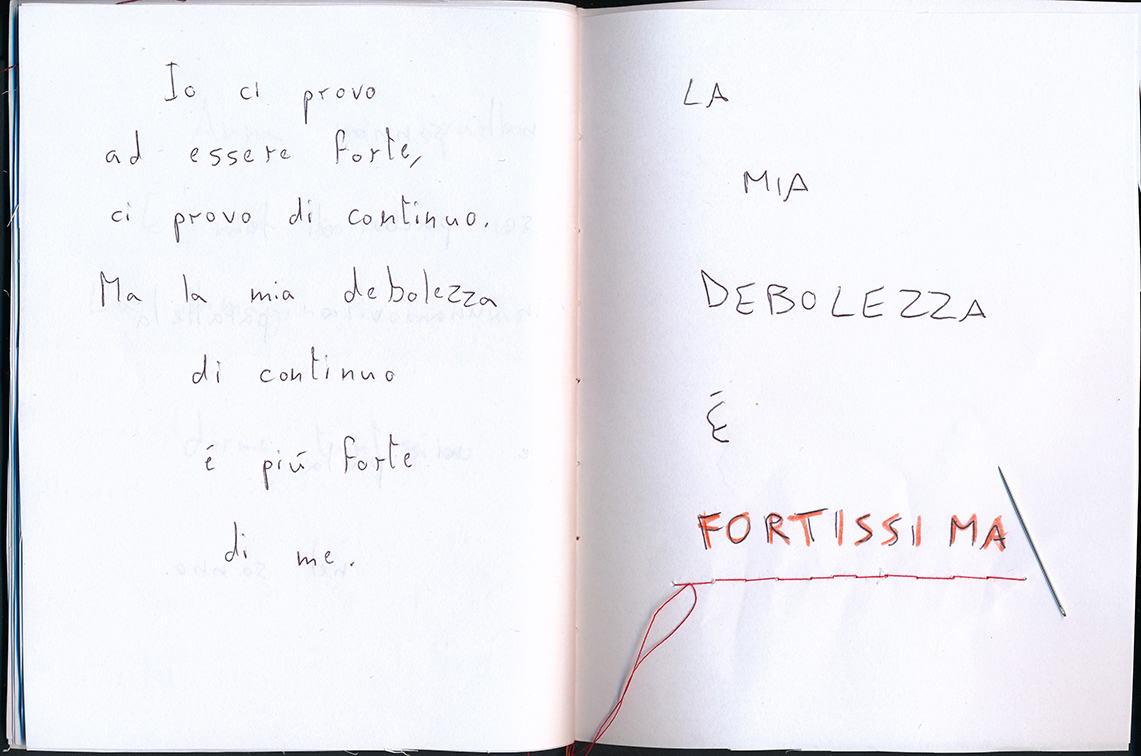 Io ci provo
ad essere forte,
ci provo di continuo.
Ma la mia debolezza
di continuo
é piú forte
di me.
LA
MIA
DEBOLEZZA
É
FORTISSIMA